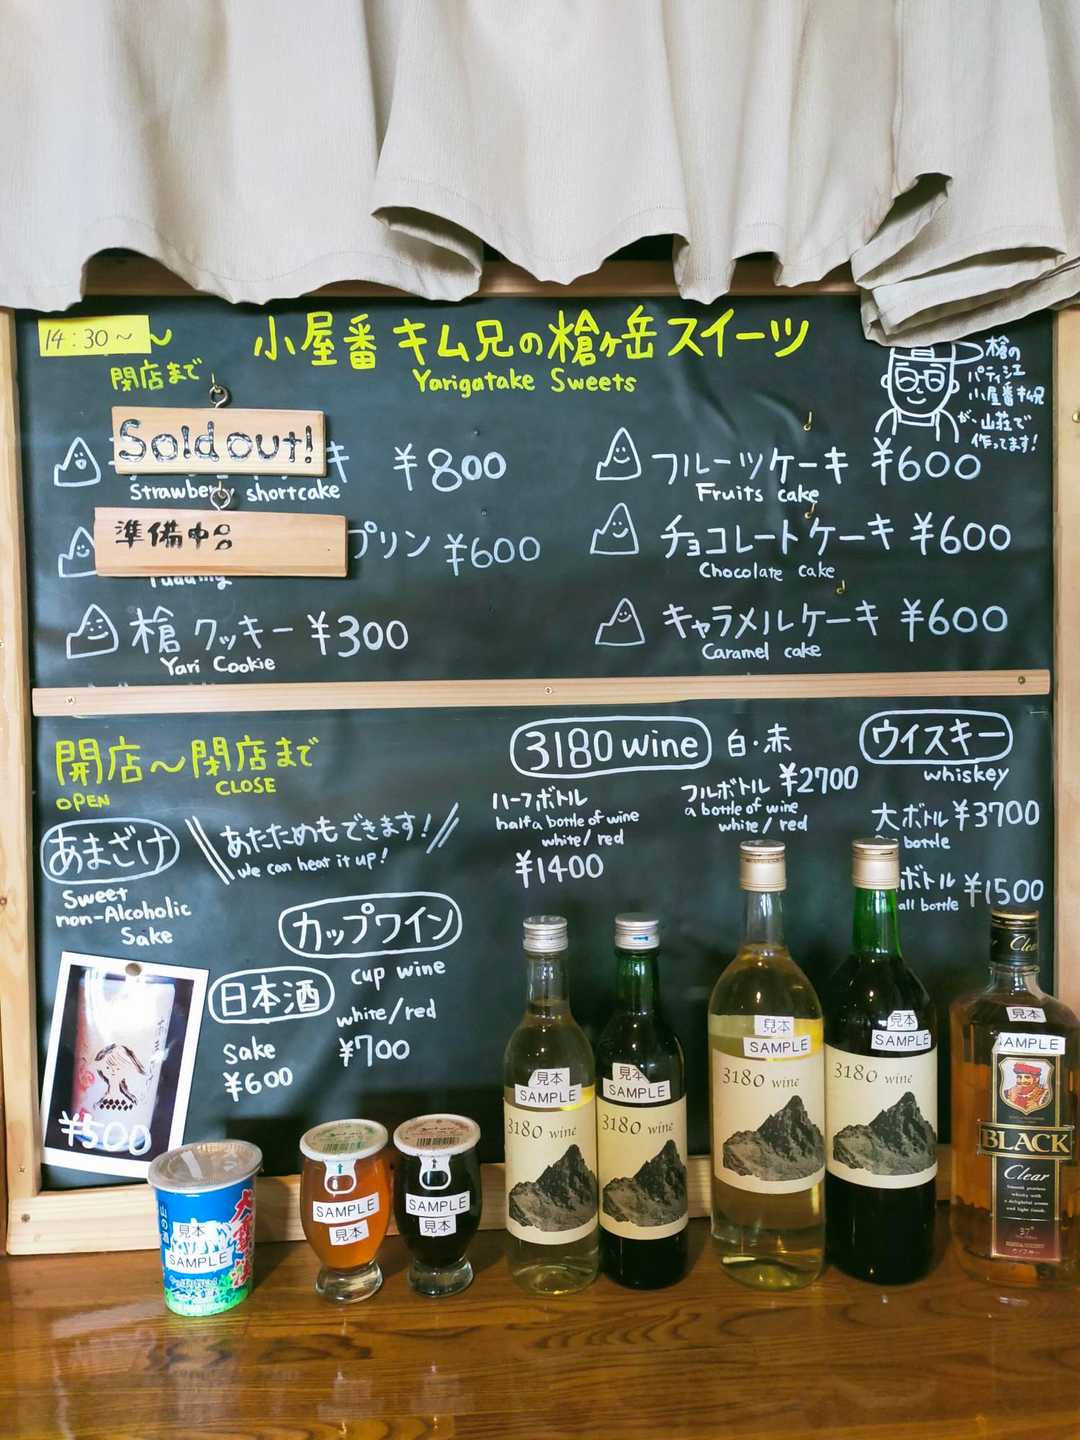 14:30～
～
閉店まで
小屋番 キム兄の槍ヶ岳 スイーツ
Yarigatake Sweets
槍の
パティシエ
小屋番キム兄
が、山荘で
作ってます!
Sold out!
キ ¥800
Strawberry shortcake
準備中
プリン ¥600
Pudding
槍 クッキー ¥300
Yari Cookie
フルーツケーキ ¥600
Fruits cake
チョコレートケーキ ¥600
Chocolate cake
キャラメルケーキ ¥600
Caramel cake
開店～閉店まで
OPEN CLOSE
あまざけ
Sweet
non-Alcoholic
Sake
¥500
あたためもできます!
We can heat it up!
カップワイン
cup wine
white/red
¥700
日本酒
Sake
¥600
3180 wine 白・赤
ハーフボトル
half a bottle of wine
white/red
¥1400
フルボトル ¥2700
a bottle of wine
white/red
ウイスキー
whiskey
大ボトル ¥3700
bottle
ボトル ¥1500
all bottle
山の酒
見本
SAMPLE
SAMPLE
見本
SAMPLE
見本
見本
SAMPLE
3180 wine
見本
SAMPLE
3180 wine
見本
SAMPLE
3180 wine
見本
SAMPLE
3180 wine
Clear
見本
SAMPLE
BLACK
Clear
37°